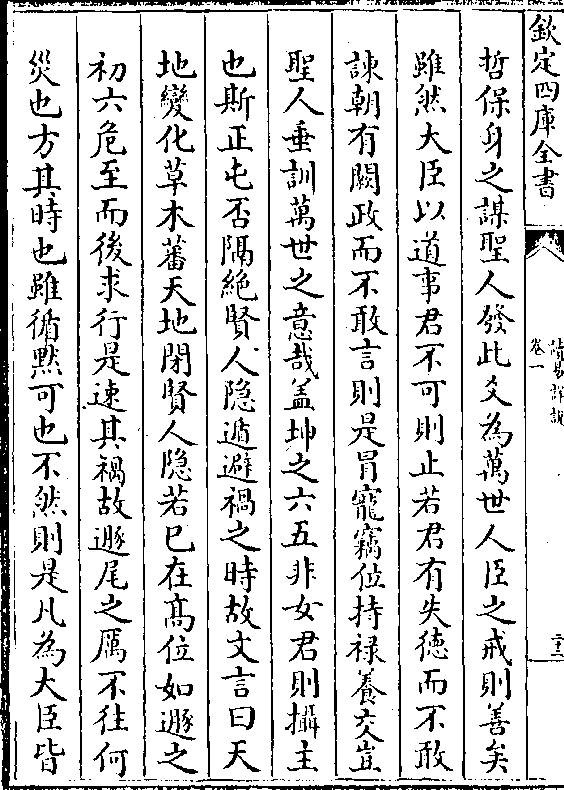 欽定四庫全書
讀易詳說
卷一
二十三
哲保身之謀聖人發此爻為萬世人臣之戒則善矣
雖然大臣以道事君不可則止若君有失德而不敢
諌朝有闕政而不敢言則是冐寵竊位持禄養交豈
聖人垂訓萬世之意哉盖坤之六五非女君則攝主
也斯正屯否隔絶賢人隐遁避禍之時故文言曰天
地變化草木蕃天地閉賢人隐若已在髙位如遯之
初六危至而後求行是速其禍故遯尾之厲不往何
災也方其時也雖循黙可也不然則是凡為大臣皆